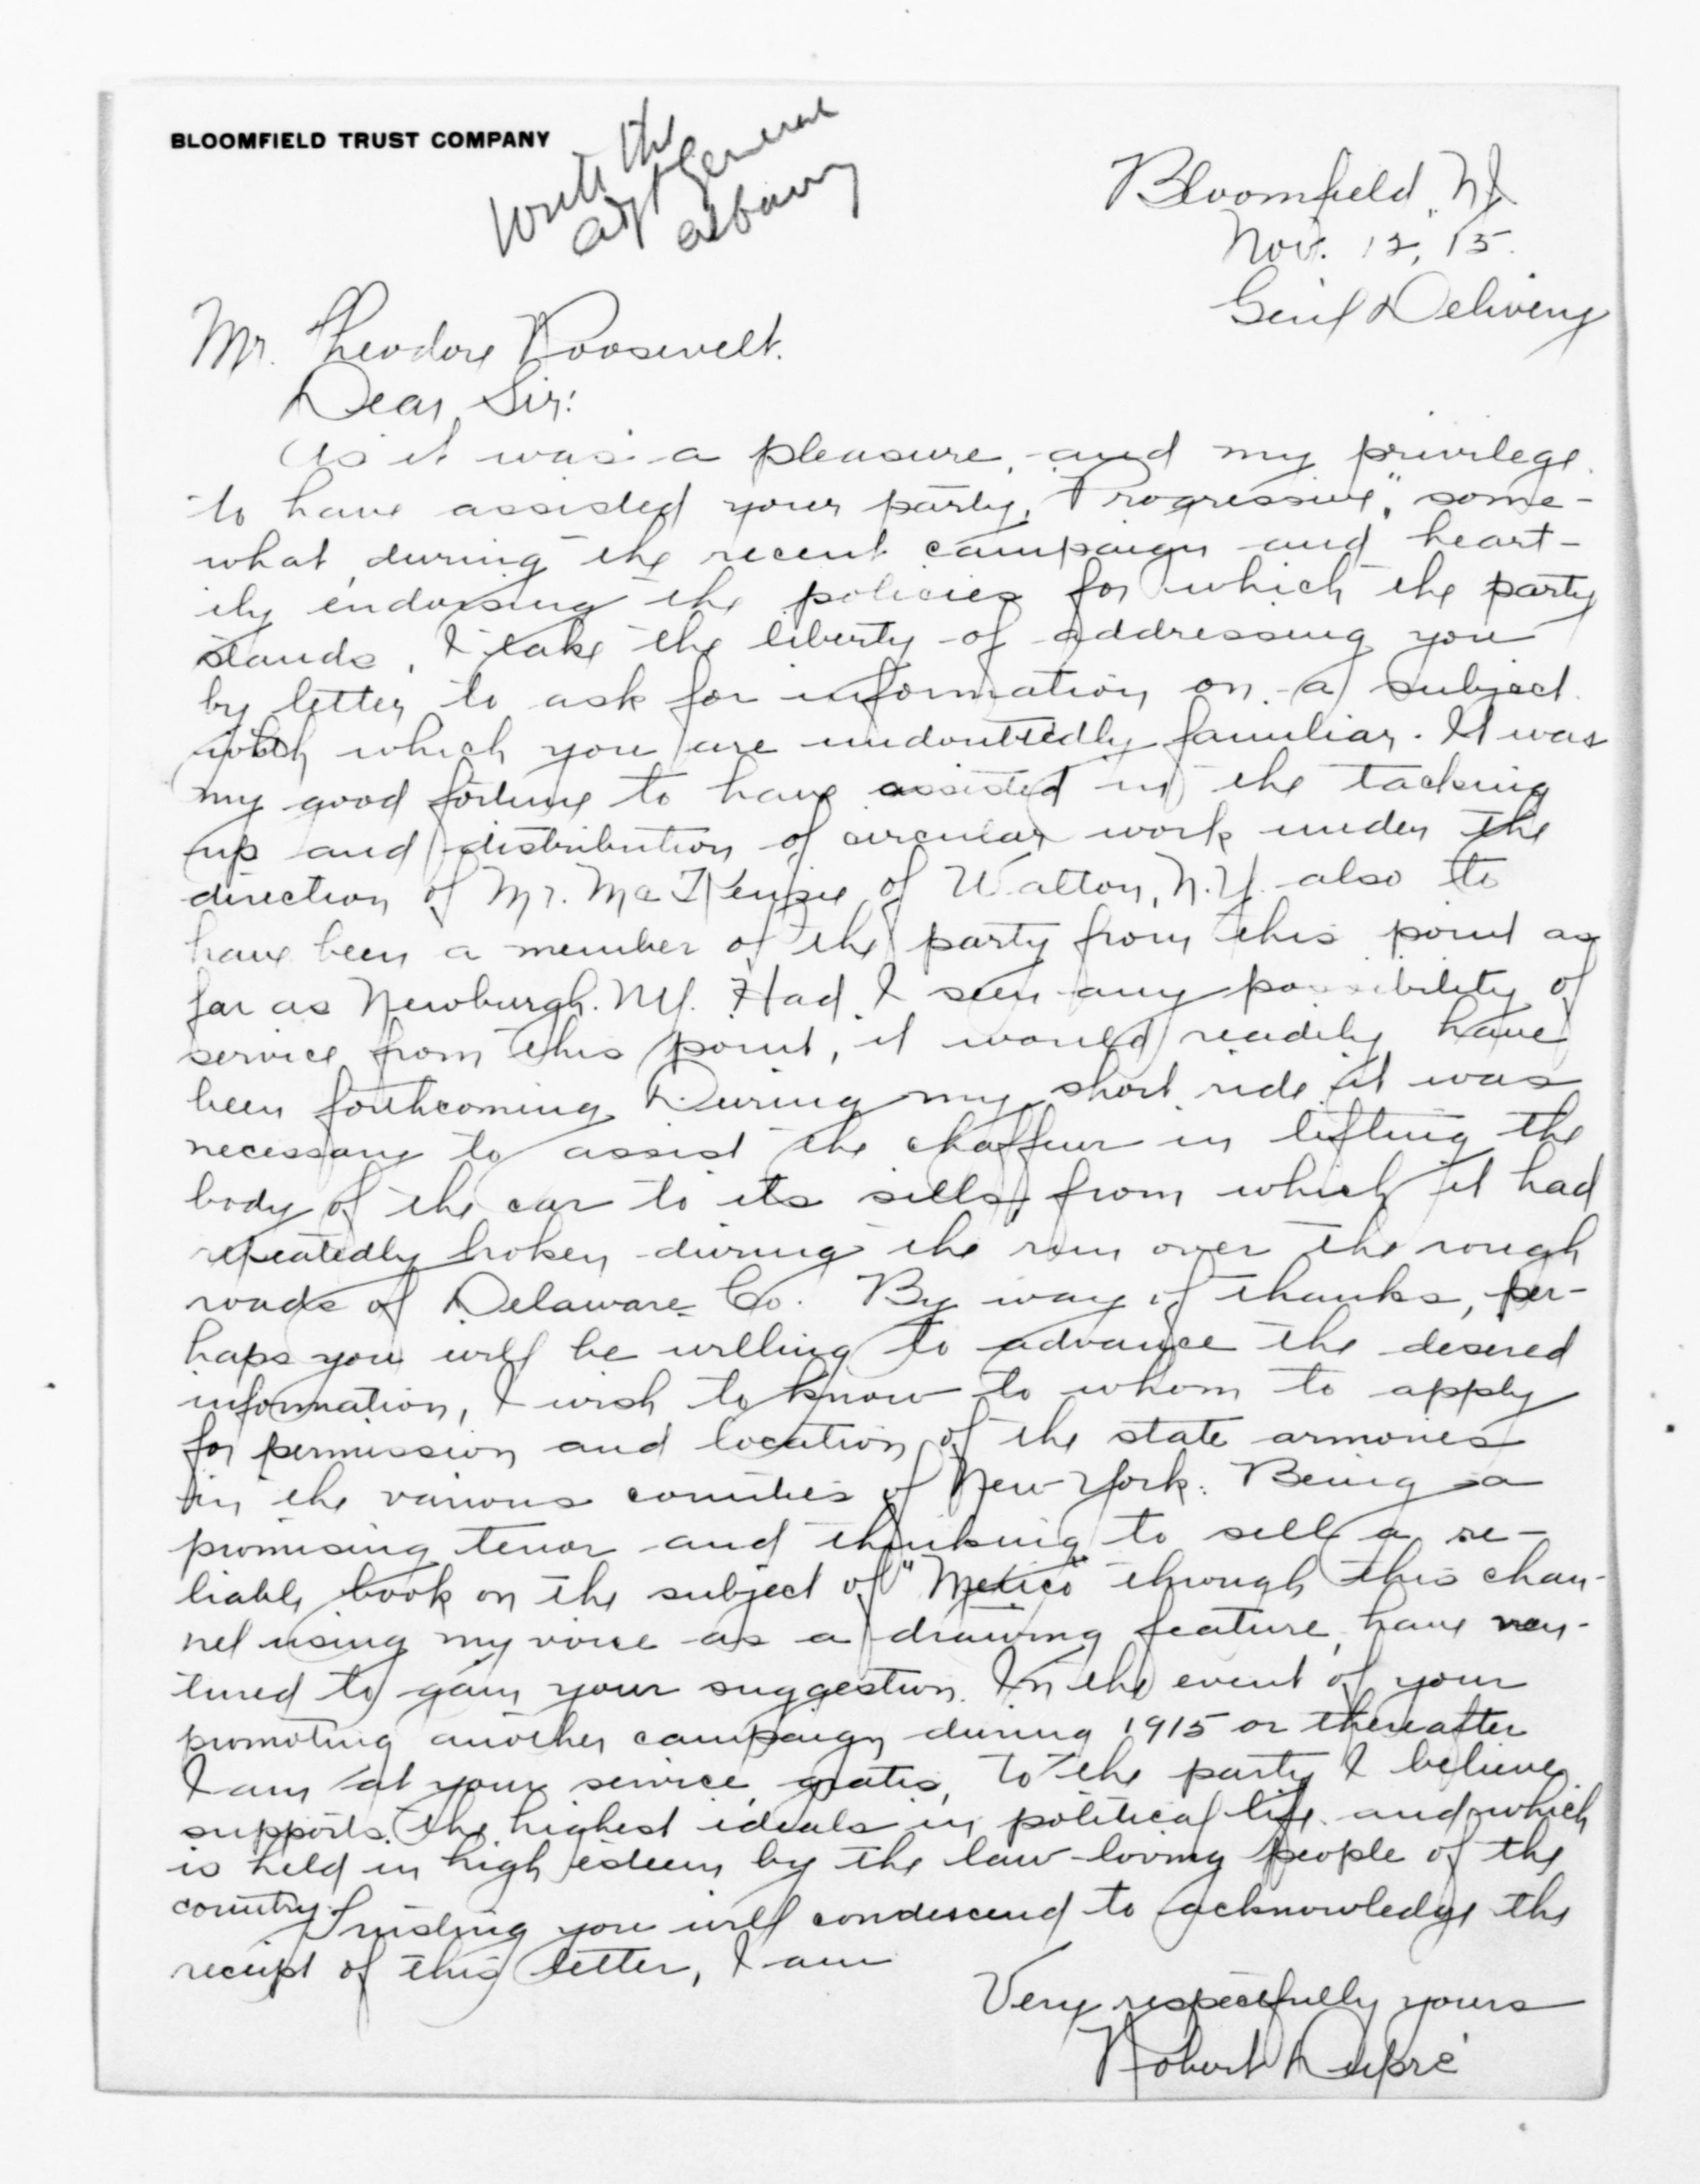 BLOOMFIELD TRUST COMPANY
Write the
Adjt General
Albany
Bloomfield, NJ.
Nov. 12, 15.
Gen'l Delivery
Mr. Theodore Roosevelt.
Dear Sir:
As it was a pleasure, and my privilege
to have assisted your party, "Progressive", some-
what during the recent campaign and heart-
ily endorsing the policies for which the party
stands, I take the liberty of addressing you
by letter to ask for information on a subject
with which you are undoubtedly familiar. It was
my good fortune to have assisted in the tacking
up and distribution of circular work under the
direction of Mr. McKenzie of Walton, N.Y. also to
have been a member of the party from this point as
far as Newburgh. NY. Had I seen any possibility of
service from this point, it would readily have
been forthcoming. During my short ride it was
necessary to assist the chaffeur in lifting the
body of the car to its sills from which it had
repeatedly broken during the run over the rough
roads of Delaware Co. By way of thanks, per-
haps you will be willing to advance the desired
information, I wish to know to whom to apply
for permission and location of the state armories
in the various counties of New York. Being a
promising tenor and thinking to sell a re-
liable book on the subject of "Mexico" through this chan-
nel using my voice as a drawing feature, have ven-
tured to gain your suggestion. In the event of your
promoting another campaign during 1915 or thereafter
I am at your service, gratis, to the party I believe
supports the highest ideals in political life and which
is held in high esteem by the law-loving people of the
country.
Trusting you will condescend to acknowledge the
receipt of this letter, I am
Very respectfully yours
Robert Dupré